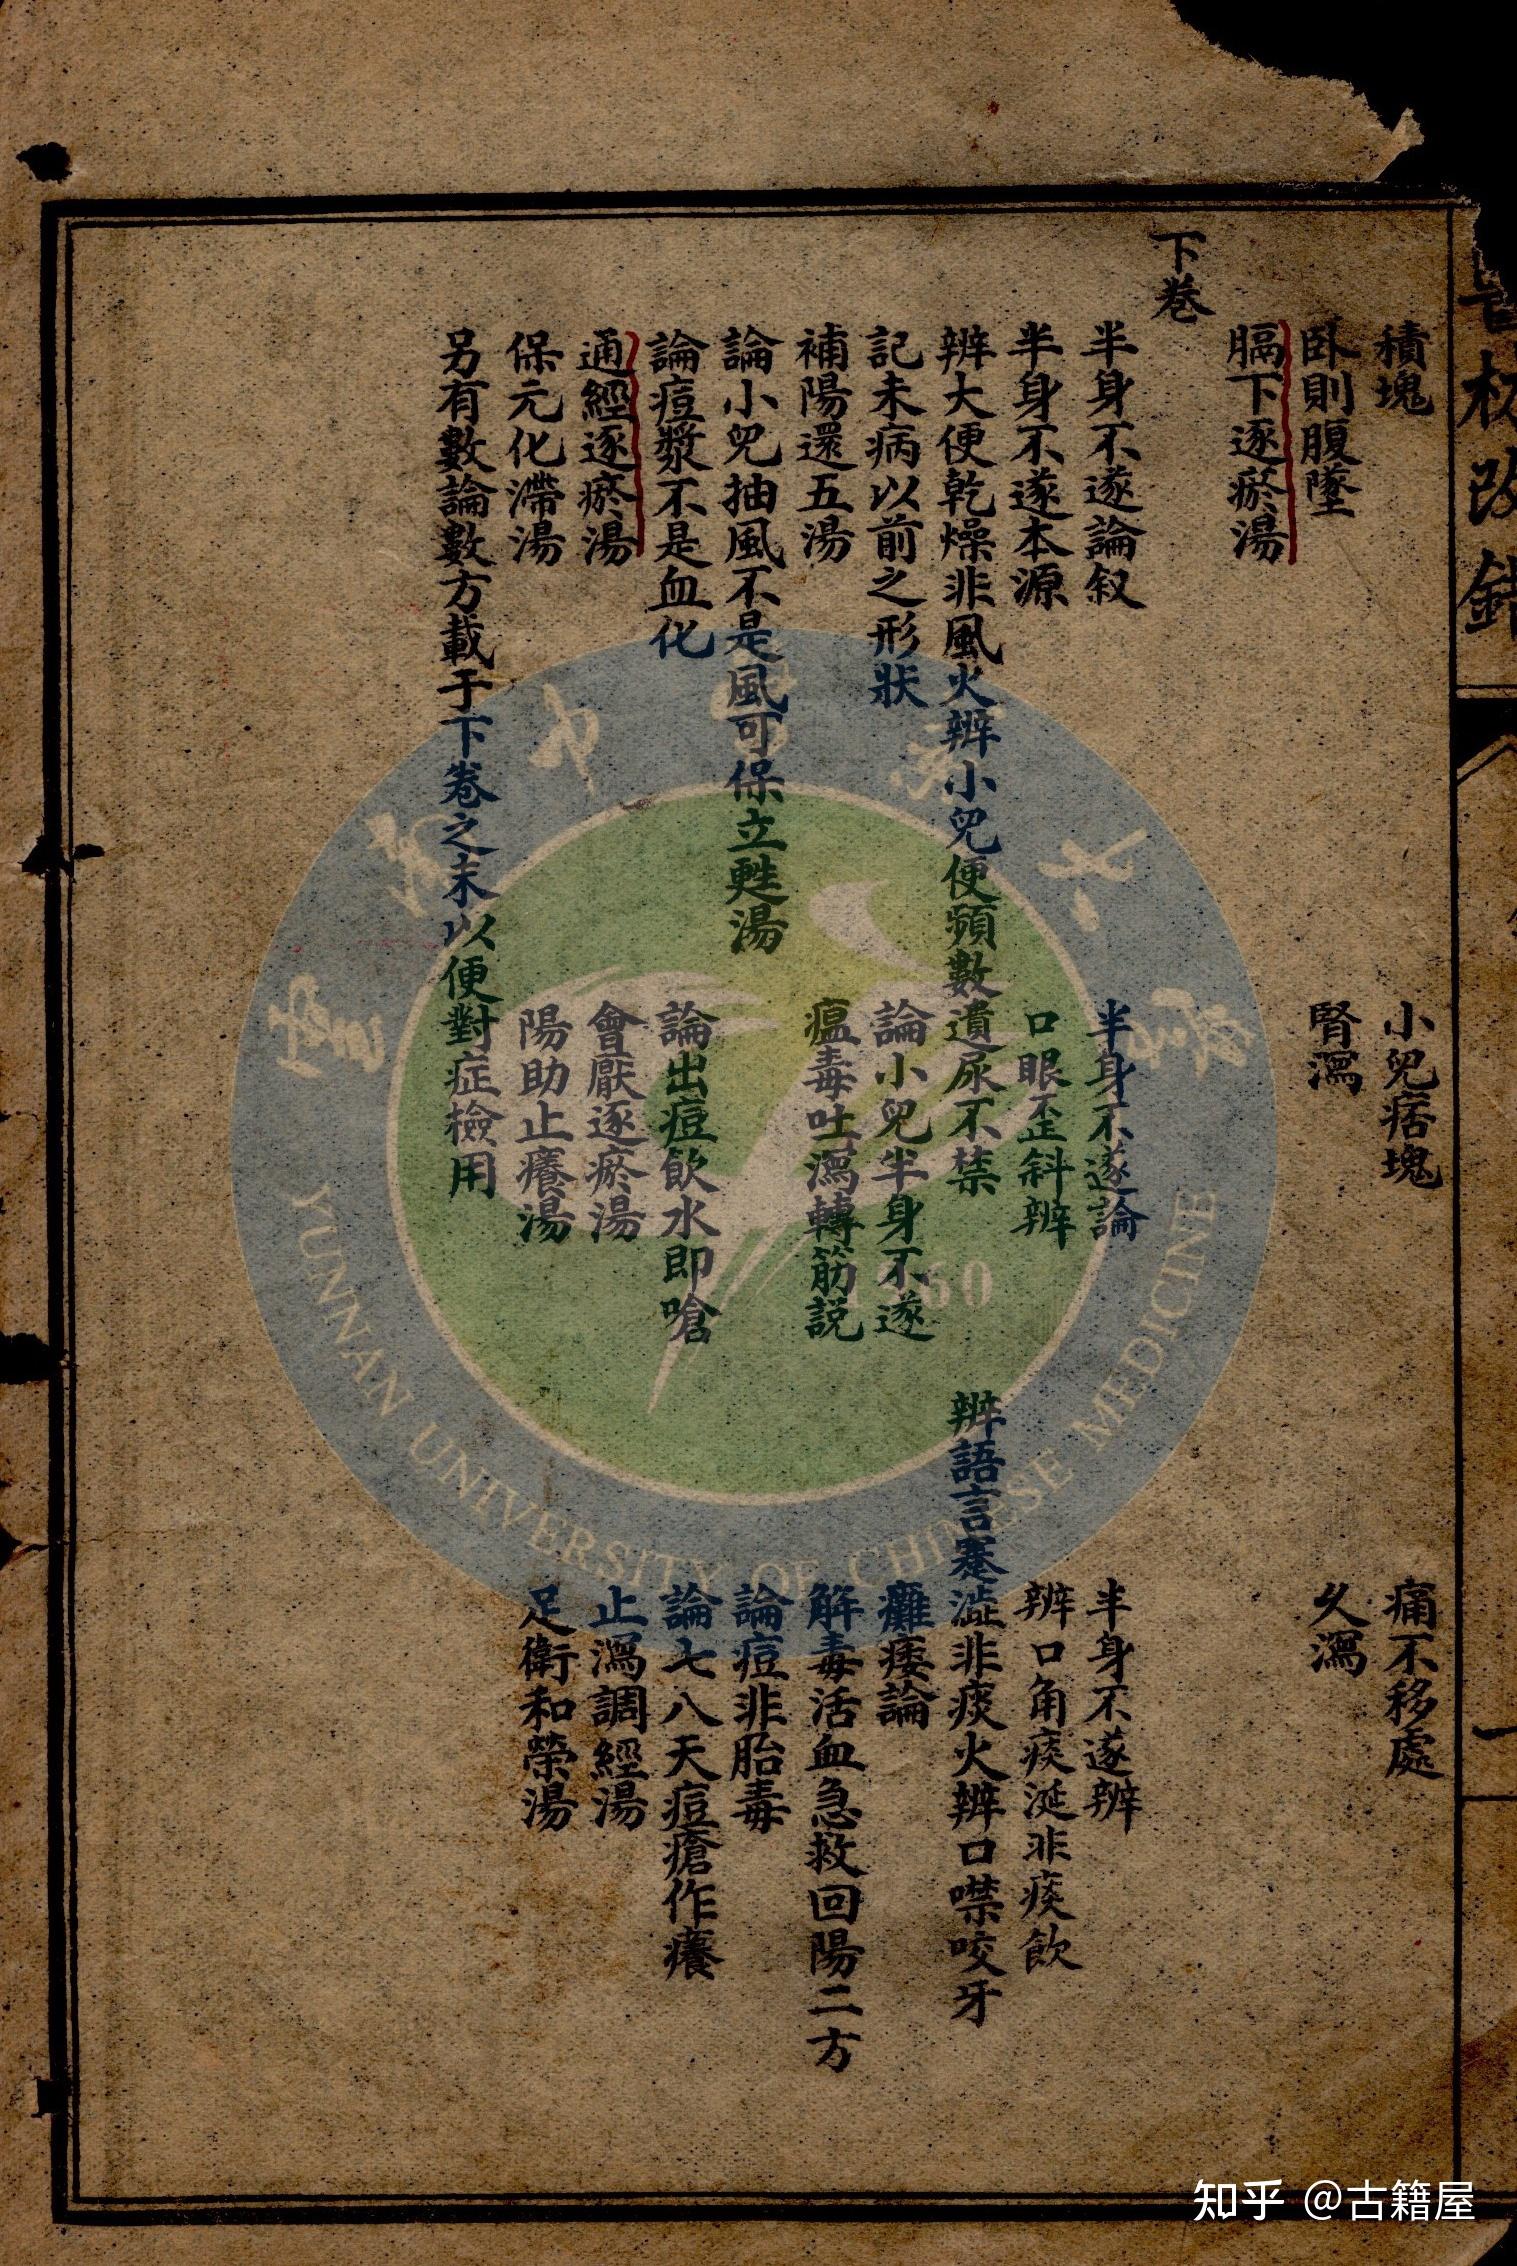 積塊　小兒痞塊　痛不移處
卧則腹墜　腎瀉　久瀉
膈下逐瘀湯
下卷
半身不遂論叙　半身不遂論　半身不遂辨
半身不遂本源　口眼歪斜辨　辨口角痰涎非痰飲
辨大便乾燥非風火辨小兒便頻數遺尿不禁　辨語言蹇澁非痰火辨口噤咬牙
記未病以前之形狀　論小兒半身不遂　癱痿論
補陽還五湯　瘟毒吐瀉轉筋説　解毒活血急救回陽二方
論小兒抽風不是風可保立甦湯　論痘非胎毒
論痘漿不是血化　論出痘飲水即嗆　論七八天痘瘡作癢
通經逐瘀湯　會厭逐瘀湯　止瀉調經湯
保元化滯湯　陽助止癢湯　足衛和榮湯
另有數論數方載于下卷之末以便對症檢用
林改錯
YUNNAN UNIVERSITY OF CHINESE MEDICINE
知乎 @古籍屋